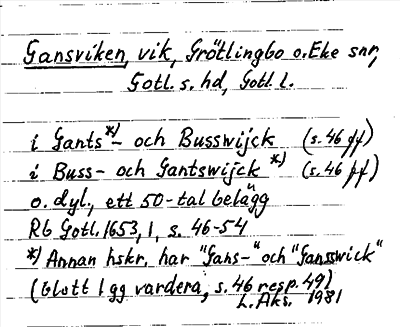 Gansviken, vik, Grötlingbo o. Eke snr,
Gotl. s. hd, Gotl. l.
i Gants*)- och Busswijck (s. 46 ff)
i Buss- och Gantswijck *) (s. 46 ff)
o. dyl., ett 50-tal belägg
Rb Gotl. 1653, 1, s. 46-54
*) Annan hskr. har "Gans-" och "Ganswick"
(blott 1 gg vardera, s. 46 resp. 49)
L. Aks. 1981